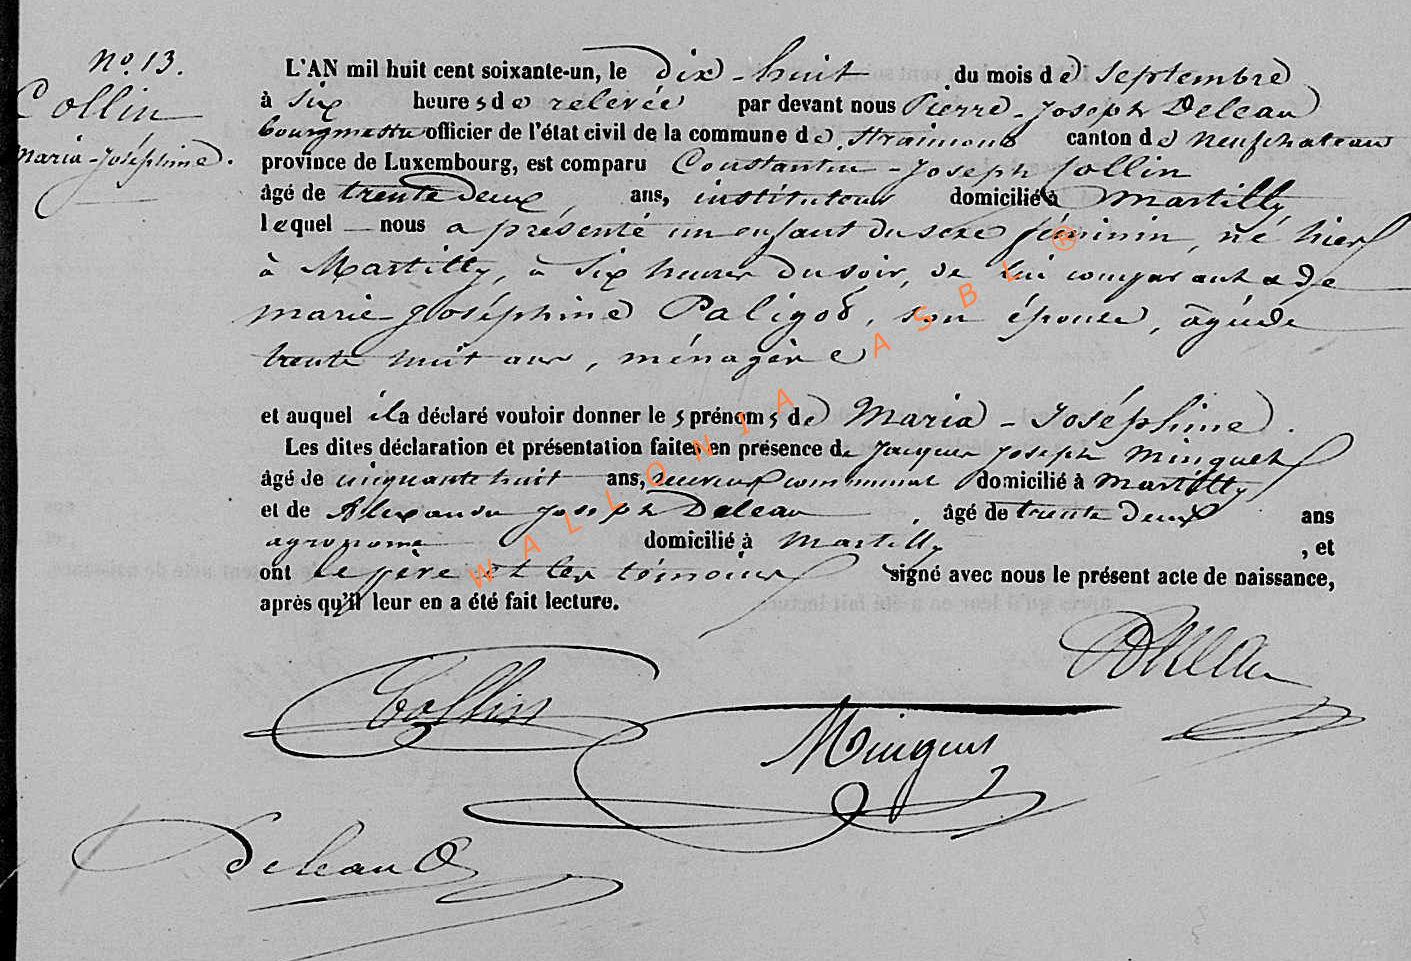 N° 13.
Collin
Maria-Joséphine.
L'AN mil huit cent soixante-un, le dix-huit du mois de Septembre
à six heures de relevée par devant nous Pierre-Joseph Deleau
bourgmestre officier de l'état civil de la commune de Straimont canton de neufchateau
province de Luxembourg, est comparu Constantin-Joseph Collin
âgé de trente deux ans, instituteur domicilié à Martilly
lequel nous a présenté un enfant du sexe féminin, né hier
à Martilly, à six heures du soir, de lui comparant & de
marie-Joséphine Paligot, son épouse, âgée de
trente huit ans, ménagère
et auquel il a déclaré vouloir donner les prénoms de Maria-Joséphine.
Les dites déclaration et présentation faites en présence de Jacques Joseph Minguet
âgé de cinquante huit ans, receveur communal domicilié à Martilly
et de Alexandre Joseph Deleau, âgé de trente deux ans
agronome domicilié à Martilly, et
ont le père et les témoins signé avec nous le présent acte de naissance,
après qu'il leur en a été fait lecture.
Collin
Deleau
Minguet
Deleau
WALLONIA ASBL ®